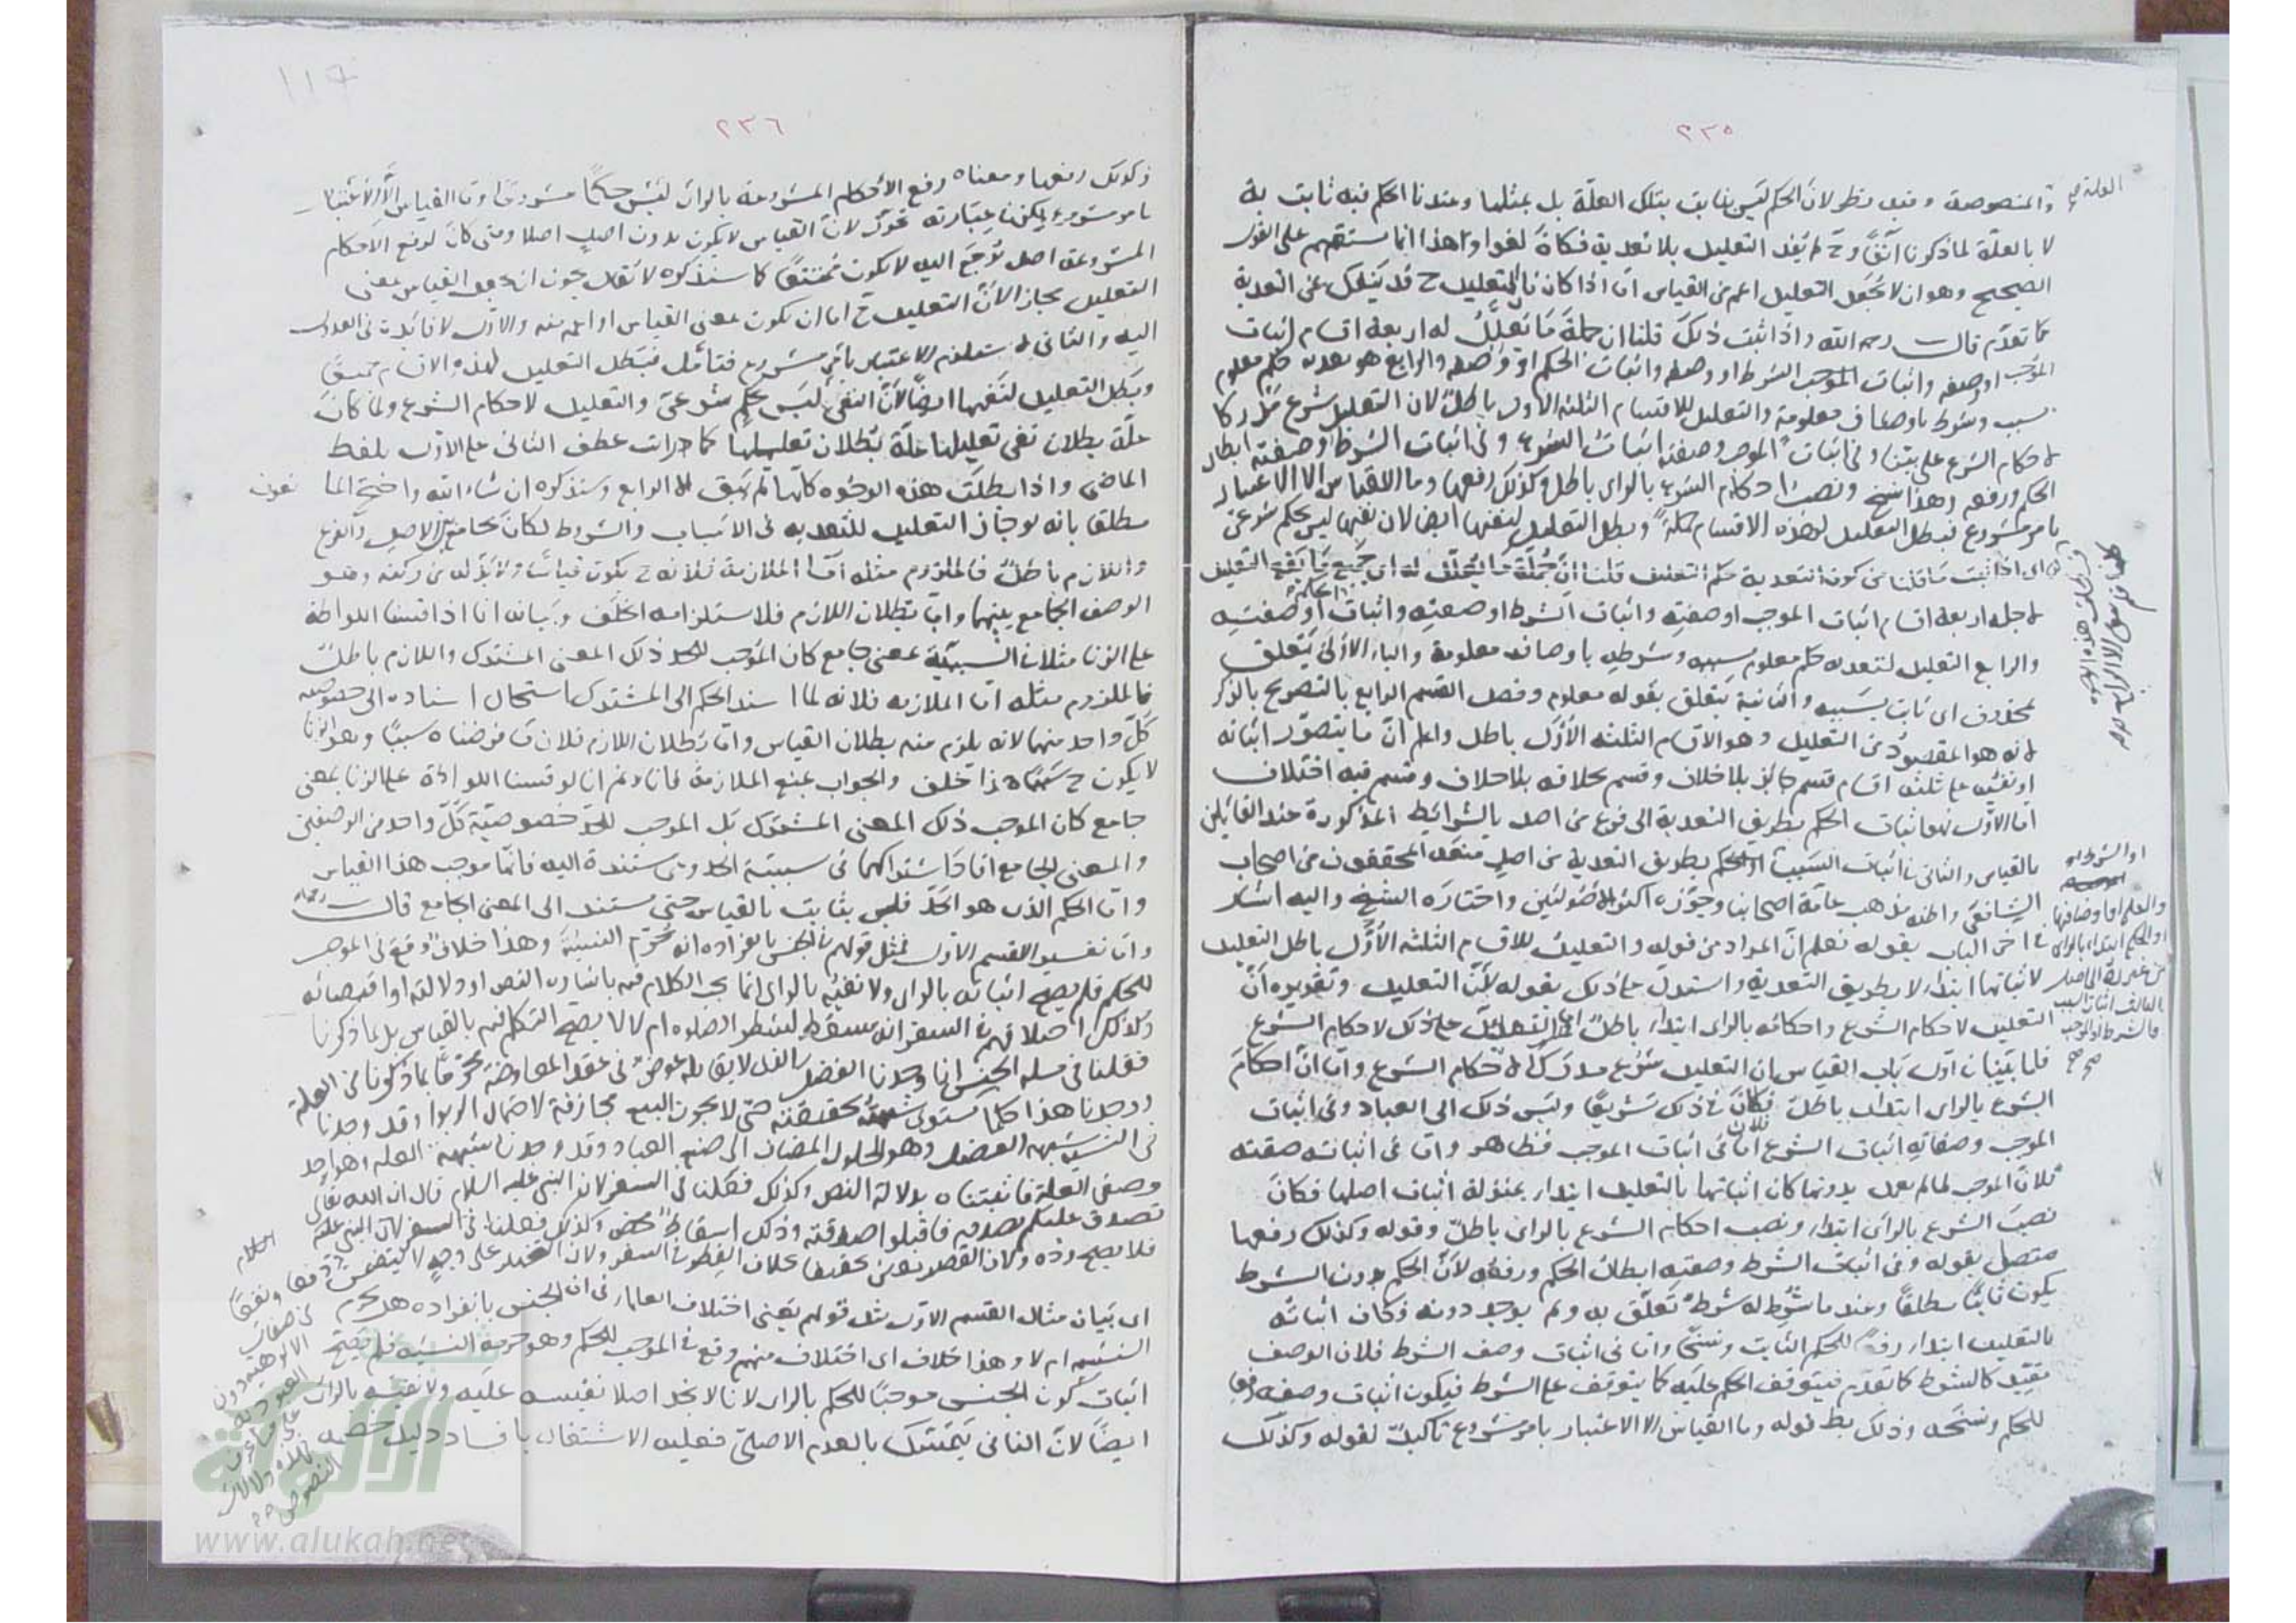 ٢٣٥
العلة صح
والمنصوصة وفيه نظر لان الحكم ليس بثابت بتلك العلّة بل بمثلها وعندنا الحكم فيه ثابت به
لا بالعلّة لما ذكرنا آنفًا وح لم يفد التعليل بلا تعدية فكان لغوا وهذا انما يستقيم على القول
الصحيح وهو ان لا يجعل التعليل اعم من القياس امّا اذا كان فالتعليل ح قد ينفك عن التعدية
كما تقدّم قال رحمه الله واذا ثبت ذلك قلنا ان جملة ما يعلّل له اربعة اقسام اثبات
الموجب او وصفه واثبات الشرط او وصفه واثبات الحكم او وصفه والرابع هو تعدية حكم معلوم
بسبب وشرط باوصاف معلومة والتعليل للاقسام الثلثة الاول باطل لان التعليل شرع مدركا
لاحكام الشرع على بيّنا وفى اثبات الموجب وصفته اثبات الشرع وفى اثبات الشرط وصفته ابطال
الحكم ورفعه وهذا نسخ ونصب احكام الشرع بالراى باطل وكذلك رفعها وما القياس الا الاعتبار
بامر مشروع فبطل التعليل لهذه الاقسام جملة وبطل التعليل لنفيها ايضا لان نفيها ليس بحكم شرعى
اى اذا ثبت ما قلنا من كون التعدية حكم التعليل قلنا انّ جملة ما يعلّل له اى جميع ما يقع التعليل
لاجله اربعة اقسام اثبات الموجب او صفته واثبات الشرط او صفته واثبات او صفته
والرابع التعليل لتعدية حكم معلوم بسببه وشرطه باوصاف معلومة والباء الاولى يتعلق
بمحذوف اى ثابت بسببه والثانية يتعلق بقوله معلوم وفصل القسم الرابع بالتصريح بالذكر
لانه هو المقصود من التعليل وهو الاقسام الثلثة الاول باطل واعلم انّ ما يتصوّر اثباته
او نفيه على ثلثة اقسام قسم جائز بلا خلاف وقسم بخلافه بلا خلاف وقسم فيه اختلاف
امّا الاول فهو اثبات الحكم بطريق التعدية الى فرع من اصل بالشرائط المذكورة عند القايلين
بالقياس والثانى اثبات السبب الحكم بطريق التعدية من اصل منعه المحققون من اصحاب
الشافعى واظنه مذهب عامّة اصحابنا وجوّزه اكثر الاصوليّين واختاره الشيخ واليه اشار
فى آخر الباب بقوله نعلم انّ المراد من قوله والتعليل للاقسام الثلثة الاول باطل التعليل
لاثباتها ابتداء لا بطريق التعدية واستدلّ على ذلك بقوله لانّ التعليل وتقريره انّ
التعليل لاحكام الشرع واحكامه بالراى ابتداء باطل امّا التعليل على ذلك لاحكام الشرع
فلما بيّنا فى اول باب القياس ان التعليل شرع مدركًا لاحكام الشرع وامّا انّ احكام
الشرع بالراى ابتداء باطل فلانّ فى ذلك تشريعًا وليس ذلك الى العباد وفى اثبات
الموجب وصفاته اثبات الشرع امّا فى اثبات الموجب فظاهر وامّا فى اثبات صفته
فلانّ الموجب لما لم يعمل بدونها كان اثباتها بالتعليل ابتداء بمنزلة اثبات اصلها فكان
نصب الشرع بالراى ابتداء ونصب احكام الشرع بالراى باطل وقوله وكذلك رفعها
متصل بقوله وفى اثبات الشرط وصفته ابطال الحكم ورفعه لانّ الحكم بدون الشرط
يكون ثابتًا مطلقًا وعند ما شُرِط له شرط تعلّق به ولم يوجد دونه فكان اثباته
بالتعليل ابتداء رفعًا للحكم الثابت ونسخًا وامّا فى اثبات وصف الشرط فلان الوصف
مقيّد كالشرط كما تقدّم فيتوقف الحكم عليه كما يتوقف على الشرط فيكون اثبات وصفه رفعا
للحكم ونسخه وذلك بط قوله وما القياس الا الاعتبار بامر مشروع تأكيدٌ لقوله وكذلك
او الشرط او
والعلم اوصافها
او الحكم ابتداء بالراى
من غير له الى اصل
اثبات السبب
صح صح
٢٣٦
ذكر ذلك رفعها ومعناه رفع الاحكام المشروعة بالراى ليس حكمًا مشروعًا وما القياس الا الاعتبار
بامر مشروع لانّ القياس لا يكون بدون اصل اصلا ومتى كان لرفع الاحكام
المشروعة اصل ترجع اليه لا يكون ممتنعًا كما سنذكره لا يقال يجوز ان يجعل القياس بمعنى
التعليل مجازا لانّ التعليل ح اما ان يكون بمعنى القياس او اعم منه والاول لا فائدة فى العدول
اليه والثانى لا يستلزم الاعتبار بامر مشروع فتأمل فبطل التعليل لهذه الاقسام جميعًا
وبطل التعليل لنفيها ايضًا لانّ النفى ليس بحكم شرعى والتعليل لاحكام الشرع ولما كان
علّة بطلان نفى تعليلها علّة بطلان تعليلها كما مرات عطف الثانى على الاول بلفظ
الماضى واذا بطلت هذه الوجوه كانها لم يبق الا الرابع وسنذكره ان شاء الله واحتج المانعون
مطلقا بانه لو جاز التعليل للتعدية فى الاسباب والشروط لكان بجامع بين الاصل والفرع
واللازم باطل فالملزوم مثله امّا الملازمة فلانه ح يكون قياسًا ولا بدّ له من ركنه وهو
الوصف الجامع بينهما وامّا بطلان اللازم فلاستلزامه الخلف وبيانه انا اذا قسنا اللواطة
على الزنا مثلا فى السببية بمعنى جامع كان الموجب للحد ذلك المعنى المشترك واللازم باطل
فالملزوم مثله امّا الملازمة فلانه لما اسند الحكم الى المشترك استحال اسناده الى خصوصية
كلّ واحد منهما لانه يلزم منه بطلان القياس وامّا بطلان اللازم فلان ما فرضناه سببًا وهو الزنا
لا يكون ح سببًا هذا خلف والجواب بمنع الملازمة فانا لا نم انا لو قسنا اللواطة على الزنا بمعنى
جامع كان الموجب ذلك المعنى المشترك بل الموجب للحدّ خصوصيّة كلّ واحد من الوصفين
والمعنى الجامع افاد اشتراكهما فى سببية الحد وهى مستندة اليه فانّها موجب هذا القياس
وامّا الحكم الذى هو الحدّ فليس بثابت بالقياس حتى يستند الى المعنى الجامع قال رحمه الله
وامّا تفسير القسم الاول فمثل قولهم فى الجنس بانفراده انه يحرم النسيئة وهذا خلاف وقع فى الموجب
للحكم فلم يصح اثباته بالراى ولا نفيه بالراى انما يجب الكلام فيه باشارة النص او دلالته او اقتضائه
وكذلك اختلافهم فى السفر انه مسقط لشطر الصلوة ام لا لا يصح التكلم فيه بالقياس بل بما ذكرنا
فقلنا فى مسئلة الجنس انا وجدنا الفضل الذى لا يقابله عوض فى عقد المعاوضة محرّمًا بما ذكرنا من العلة
ووجدنا هذا حكما يستوى شبهته بحقيقته حتى لا يجوز البيع مجازفة لاحتمال الربوا وقد وجدنا
فى النسيئة شبهة الفضل وهو الحلول المضاف الى صنع العباد وقد وجدنا شبهة العلة وهو احد
وصفى العلة فاثبتناه بدلالة النص وكذلك فعلنا فى السفر لان النبى عليه السلام قال ان الله تعالى
تصدق عليكم بصدقة فاقبلوا صدقته وذلك اسقاط محض وكذلك فعلنا فى السفر لان النبى عليه السلام
فلا يصح ردّه ولان القصر تعين تخفيفا بخلاف الفطر فى السفر ولان التخيير على وجه لا يتضمن رفقا ونفعًا
اى بيان مثال القسم الاول مثل قولهم يعنى اختلاف العلماء فى ان الجنس بانفراده هل يحرم
النسيئة ام لا وهذا خلاف اى اختلاف منهم وقع فى الموجب للحكم وهو حرمة النسيئة فلم يصح
اثبات كون الجنس موجبًا للحكم بالراى لانا لا نجد اصلا نقيسه عليه ولا نفيه بالراى
ايضًا لانّ النافى يتمسّك بالعدم الاصلىّ فعليه الاشتغال بافساد دليل خصمه
من صفات
الالوهية دون
العبودية
النصوص
الألوكة
www.alukah.net